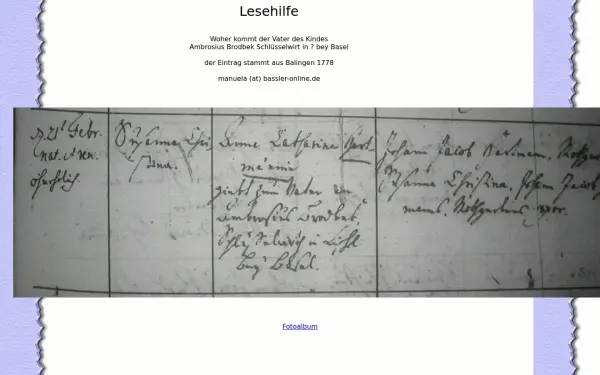 Lesehilfe
Woher kommt der Vater des Kindes
Ambrosius Brodbek Schlüsselwirt in ? bey Basel
der Eintrag stammt aus Balingen 1778
manuela (at) bassler-online.de
21 Febr.
nat. ren.
Susanna Chri
stina.
Anna Catharina Hart
männin
giebt zum Vater an
Ambrosius Brodbek
Schlüsselwirth in
bey Basel.
Johann Jacob
Susanna Christina, Johann Jacob
Fotoalbum